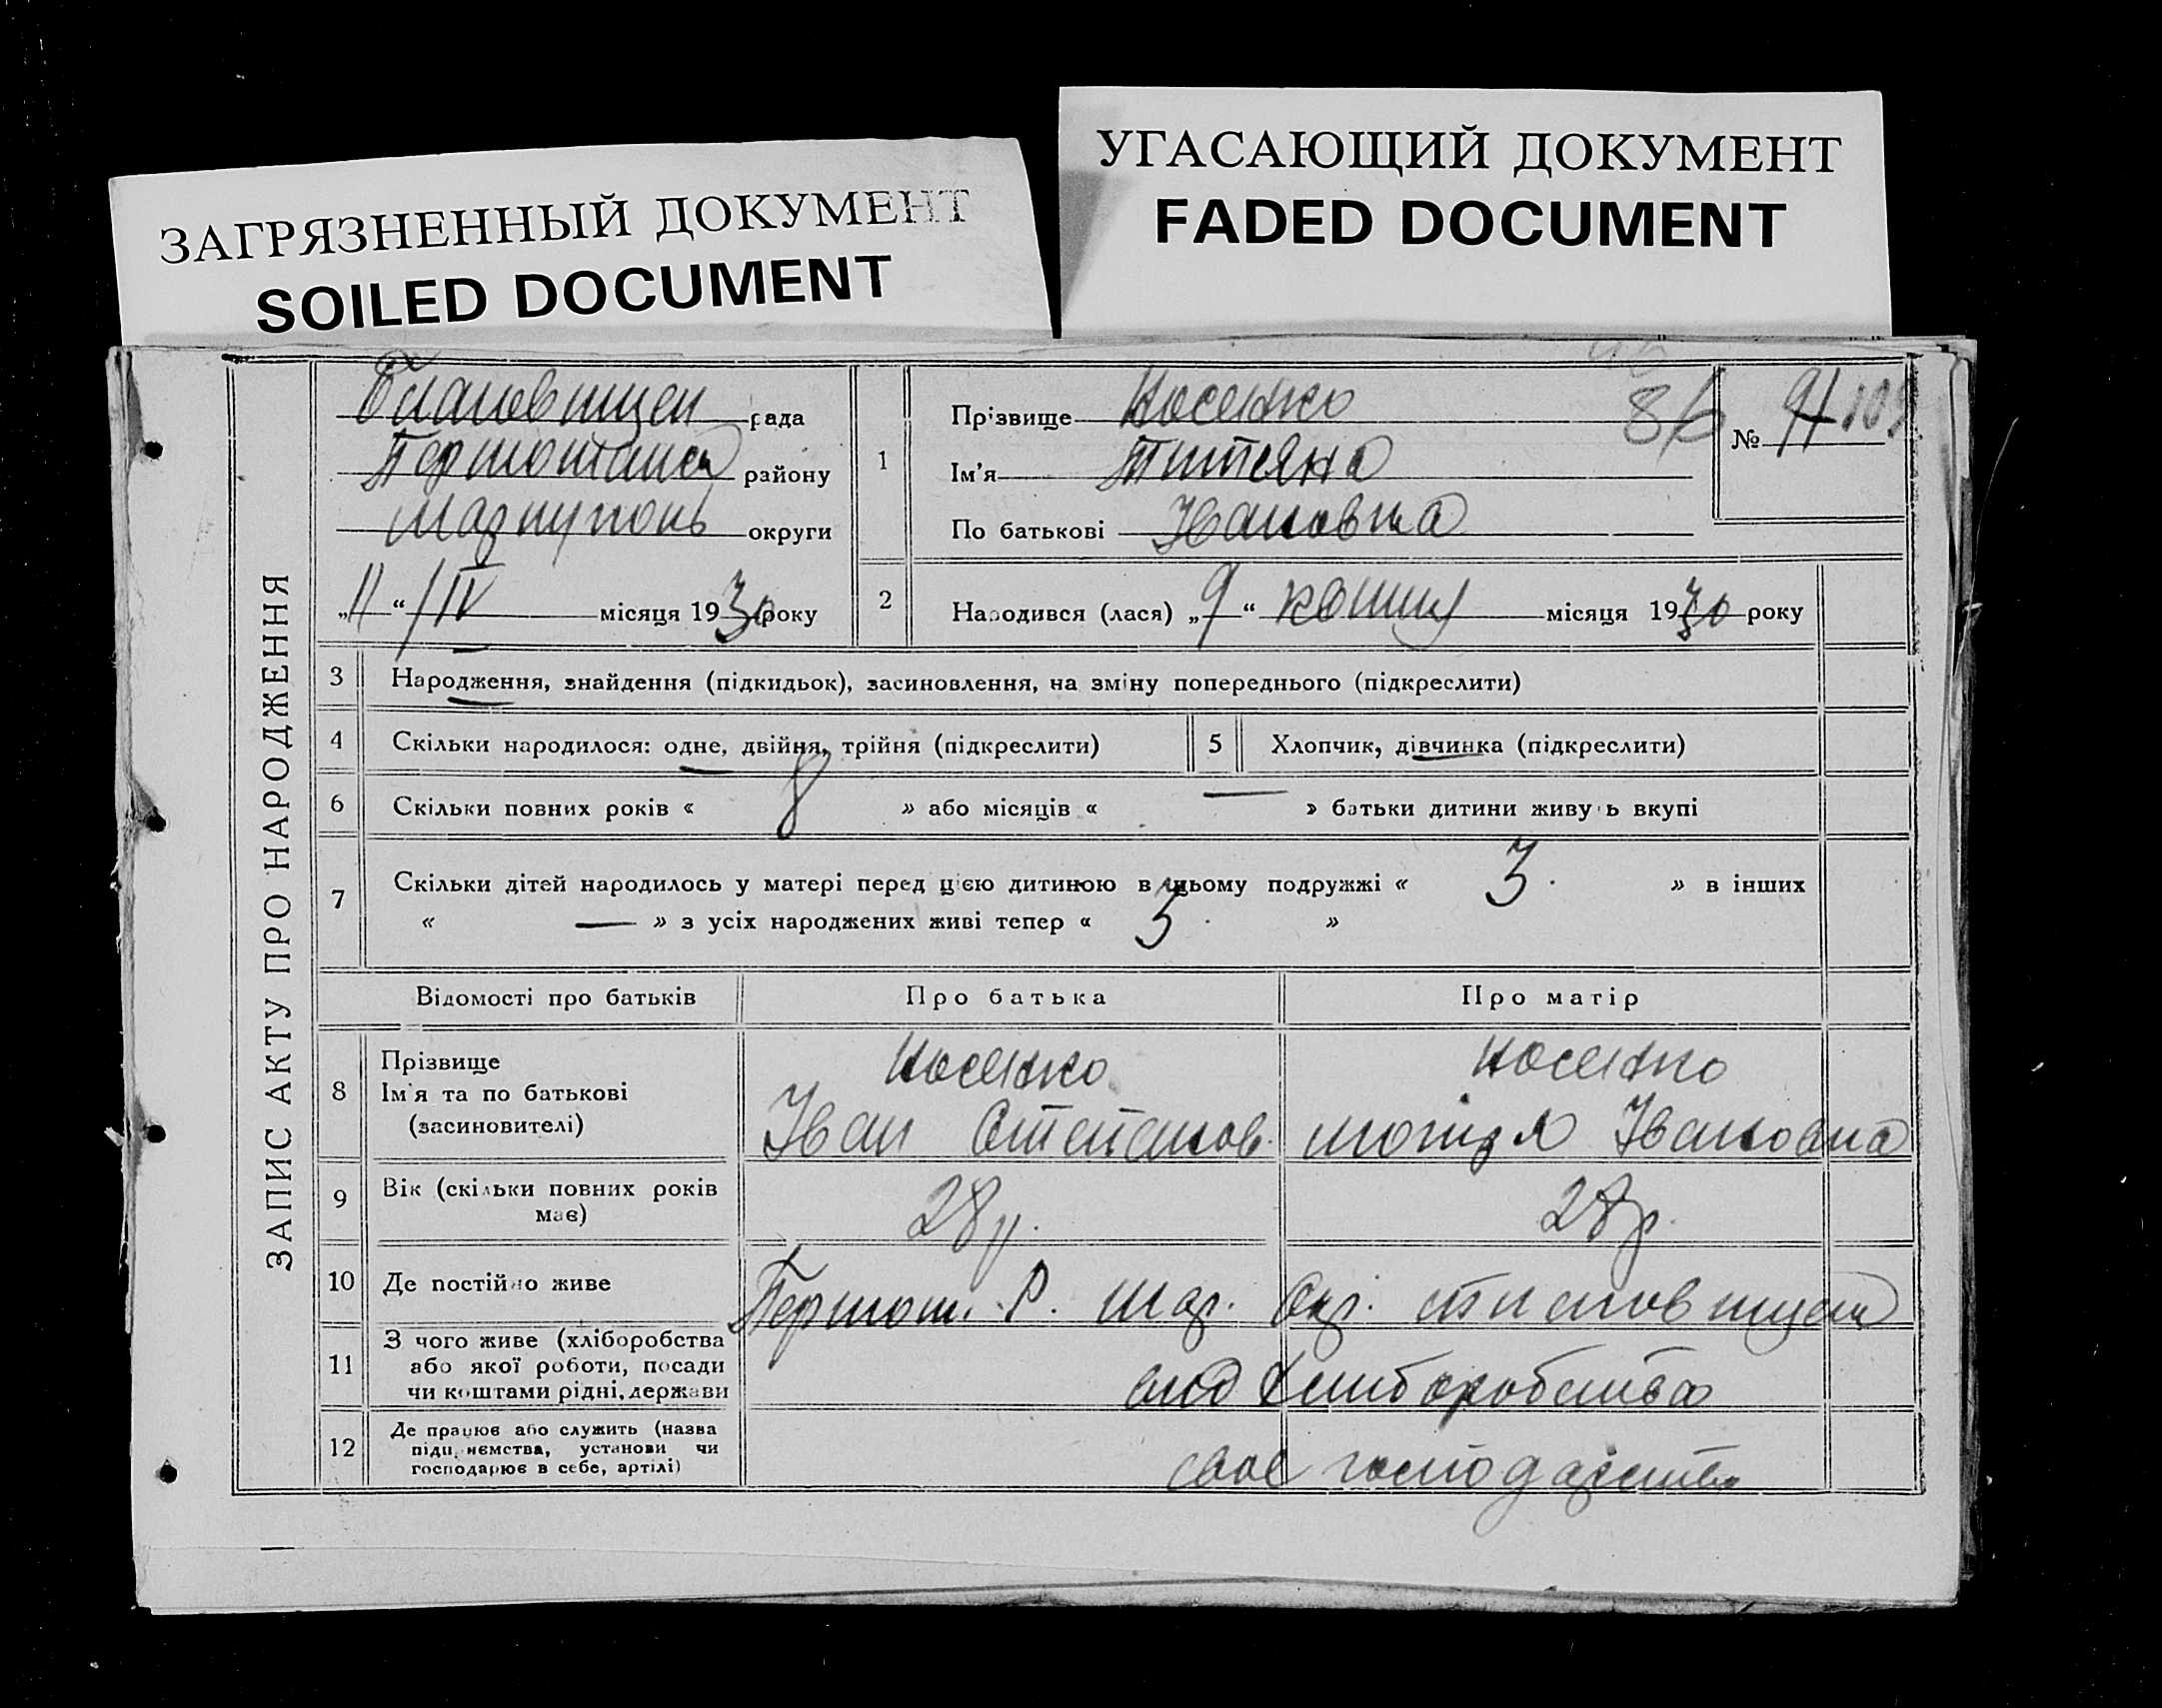 ЗАГРЯЗНЕННЫЙ ДОКУМЕНТ
SOILED DOCUMENT
УГАСАЮЩИЙ ДОКУМЕНТ
FADED DOCUMENT
ЗАПИС АКТУ ПРО НАРОДЖЕННЯ
рада
району
округи
„11“ /IV місяця 1930 року
86
№ 91
1 Прізвище Носенко
Ім'я Титяна
По батькові Івановна
2 Народився (лася) „9“ місяця 1930 року
3 Народження, знайдення (підкидьок), засиновлення, на зміну попереднього (підкреслити)
4 Скільки народилося: одне, двійня, трійня (підкреслити)
5 Хлопчик, дівчинка (підкреслити)
6 Скільки повних років « 8 » або місяців « — » батьки дитини живуть вкупі
7 Скільки дітей народилось у матері перед цією дитиною в цьому подружжі « 3 » в інших
« — » з усіх народжених живі тепер « 3 »
Відомості про батьків Про батька Про матір
8 Прізвище
Ім'я та по батькові
(засиновителі)
Носенко
Іван Степанов.
Носенко
Мотря Івановна
9 Вік (скільки повних років
має)
28 р.
28 р.
10 Де постійно живе
Першот. Р. Мар. Окр.
11 З чого живе (хліборобства
або якої роботи, посади
чи коштами рідні, держави
від хліборобства
12 Де працює або служить (назва
підприємства, установи чи
господарює в себе, артілі)
своє господарство